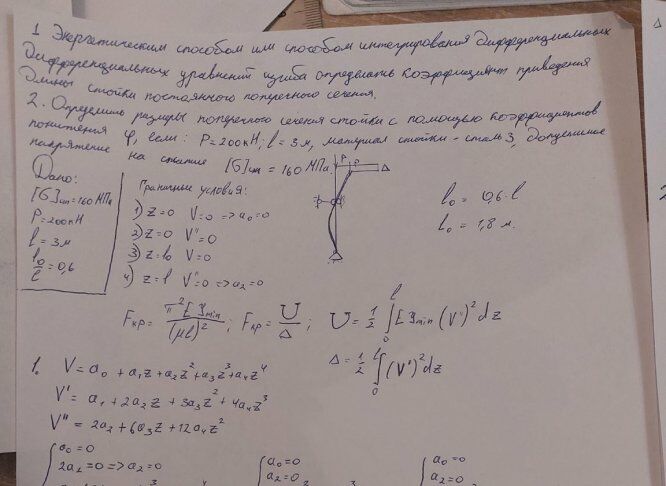 1 Энергетическим способом или способом интегрирования дифференциальных
дифференциальных уравнений изгиба определить коэффициент приведения
длины стойки постоянного поперечного сечения.
2. Определить размеры поперечного сечения стойки с помощью коэффициентов
понижения φ, если: P=200кН; l=3м, материал стойки - сталь 3, допускаемое
напряжение на сжатие [σ]сж = 160 МПа.
Дано:
[σ]сж=160МПа
P=200кН
l=3м
l0/l=0,6
Граничные условия:
1) z=0 V=0 => a0=0
2) z=0 V''=0
3) z=l0 V=0
4) z=l V''=0 => a2=0
P P Δ
l0 = 0,6·l
l0 = 1,8 м.
Fкр= π²EJmin/(μl)²; Fкр= U/Δ; U= 1/2 ∫₀ˡ EJmin (V'')² dz
Δ= 1/2 ∫₀ˡ (V')² dz
1. V= a0 + a1z + a2z² + a3z³ + a4z⁴
V' = a1 + 2a2z + 3a3z² + 4a4z³
V'' = 2a2 + 6a3z + 12a4z²
a0=0 a0=0 a0=0
2a2=0 => a2=0 a2=0 a2=0